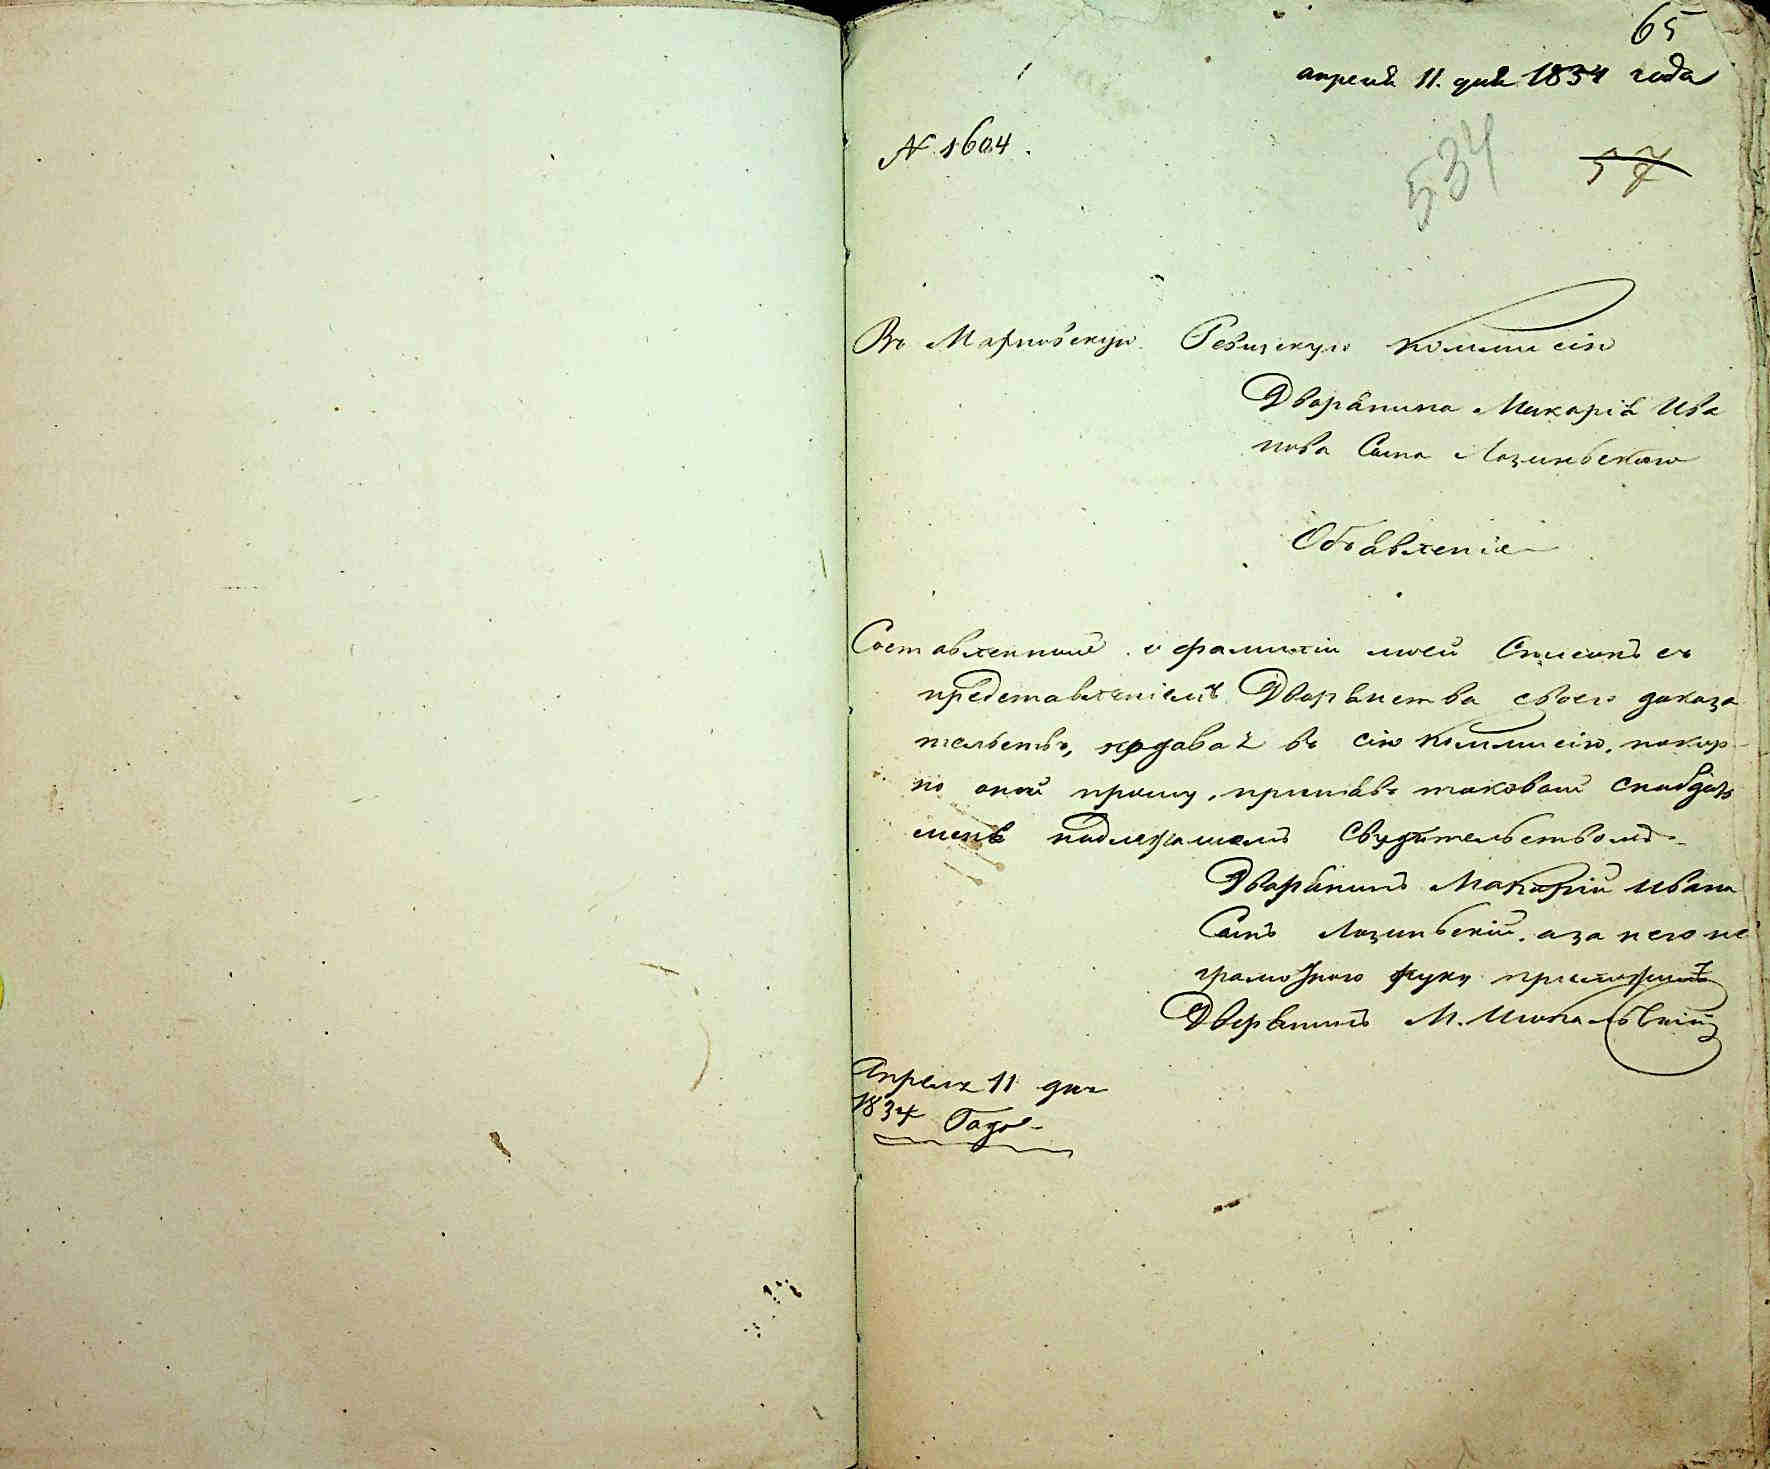 65
апреля 11. дня 1834 года
№ 1604.
534
57
Въ Ревизскую Коммисію
Дворянина Макарія Ива
нова Сына Лозинъскаго
Объявленіе
Составленный о фамиліи моей Списокъ съ
представленіемъ Дворянства своего доказа
тельствъ, подавая въ сію Коммисію, покор-
но оной прошу, принявъ таковой снабдить
меня надлежащемъ Свидительствомъ
Дворянинъ Макарій Ивана
Сынъ Лозинъскій, а за него не
грамотного руку приложилъ
Дворянинъ М.
Апреля 11 дня
1834 Года